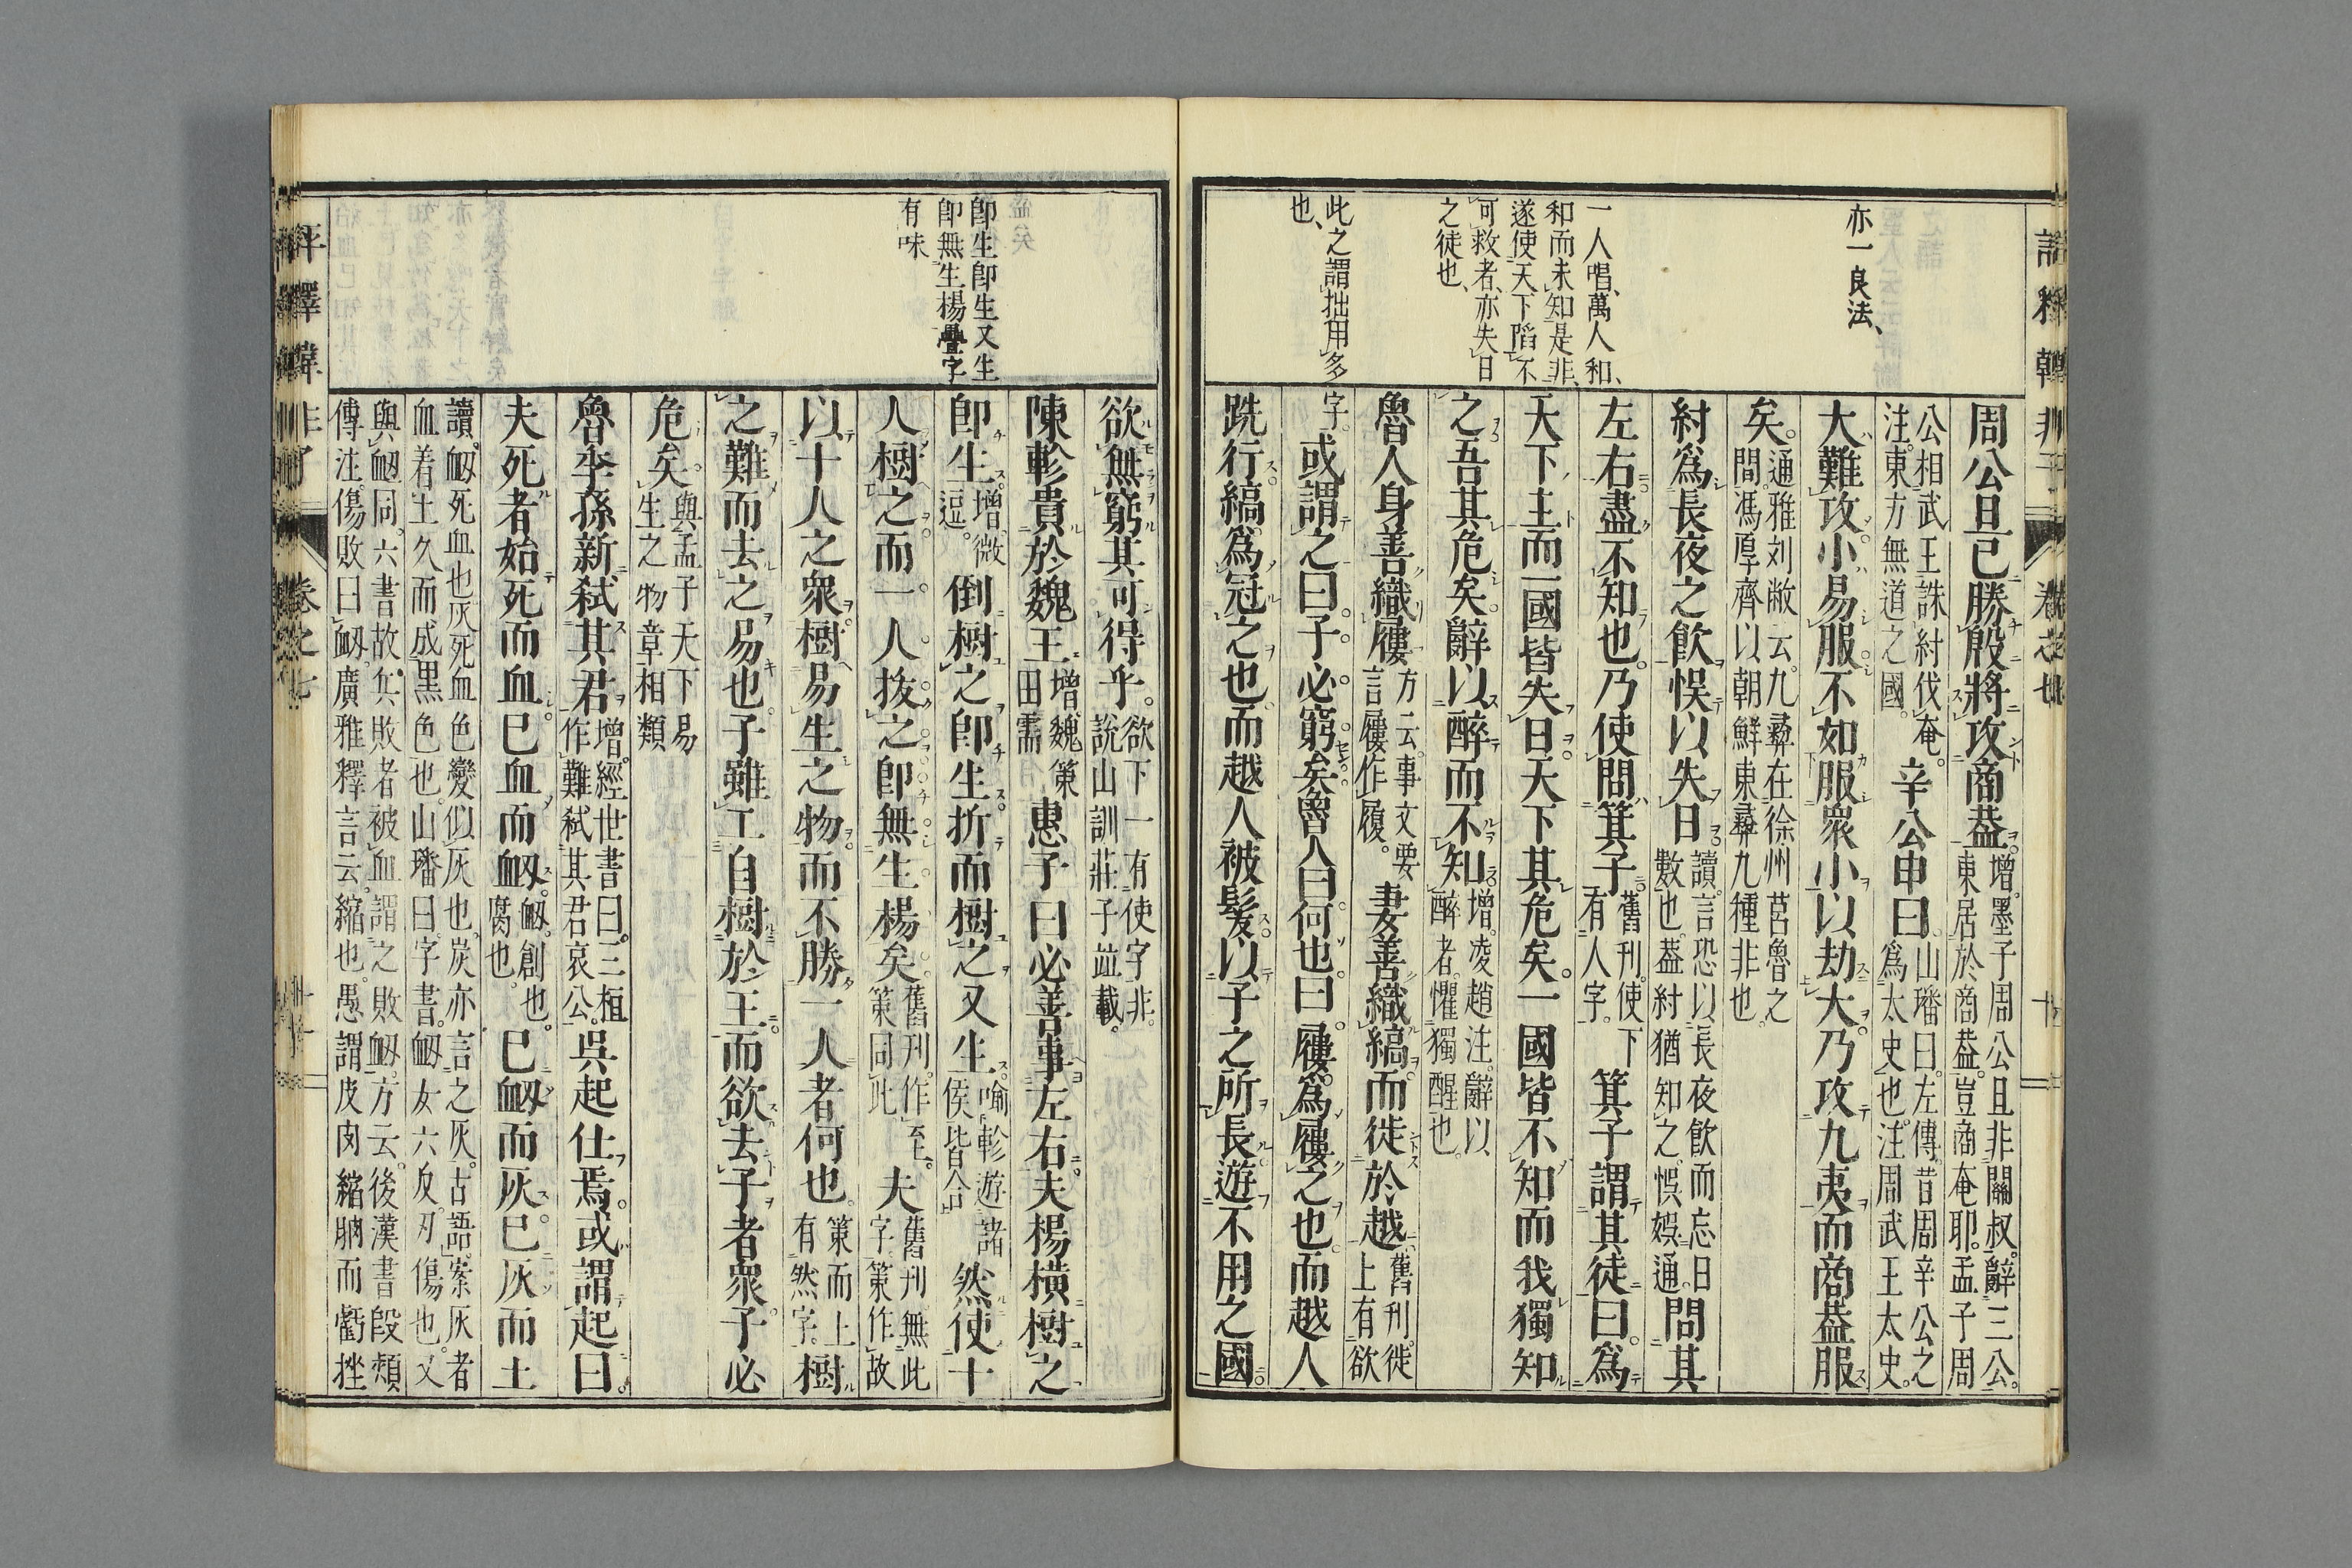 亦一良法、
一人唱、萬人和、
和而未知是非、
遂使天下陷不
可救者、亦失日
之徒也、
此之謂拙用多
也、
周公旦已勝殷將攻商蓋。增。墨子周公旦非關叔。辭三公。東居於商蓋。豈商奄耶。孟子周
公相武王誅紂伐奄。注。東方無道之國。辛公申曰。山璠曰。左傳。昔周辛公之爲太史也。注周武王太史。
大難攻小易服不如服衆小以劫大乃攻九夷而商蓋服
矣。通雅刘敞云。九彝在徐州莒魯之間。馮厚齊以朝鮮東彝九種非也。
紂爲長夜之飲懼以失日讀。言恐以長夜飲而忘日數也。蓋紂猶知之。悞娯通。問其
左右盡不知也。乃使問箕子舊刊。使下有人字。箕子謂其徒曰。爲
天下主而一國皆失日。天下其危矣。一國皆不知而我獨知
之吾其危矣。辭以醉而不知增。凌趙注。辭以醉者。懼獨醒也。
魯人身善織屨方云。事文要言屨作履。妻善織縞而徙於越舊刊。徙上有欲
字。或謂之曰。子必窮矣魯人曰。何也。曰。屨爲履之也。而越人
跣行縞爲冠之也。而越人被髮以子之所長遊不用之國。
詰釋韓非子 卷之七 十
即生即生又生
即無生楊疊字
有味
欲無窮其可得乎。欲下一有使字非。說山訓莊子竝載。
陳軫貴於魏王增。魏策田需惠子曰必善事左右。夫楊橫樹之
即生。增。微逗。倒樹之即生折而樹之又生喻軫遊諸侯皆合然使十
人樹之而一人拔之即無生楊矣舊刊。作至。策同此夫舊刊無此字。策作故
以十人之衆樹易生之物而不勝一人者何也。策而上有然字。樹
之難而去之易也。子雖工自樹於王而欲去子者衆子必
危矣。與孟子天下易生之物章相類
魯季孫新弒其君增。經世書曰。三桓作難弒其君哀公。吳起仕焉。或謂起曰。
夫死者始死而血已血而衂。衂。創也。腐也。已衂而灰已灰而土
讀。衂死血也灰死血色變似灰也。炭亦言之灰。古語。案灰者血着土久而成黑色也。山璠曰。字書。衂女六反。刃傷也。又
與衂同。六書故。兵敗者被血謂之敗衂。方云。後漢書段熲傳注。傷敗曰衂。廣雅釋言云。縮也。愚謂皮肉縮朒而虧挫
評釋韓非子 卷之七 十一